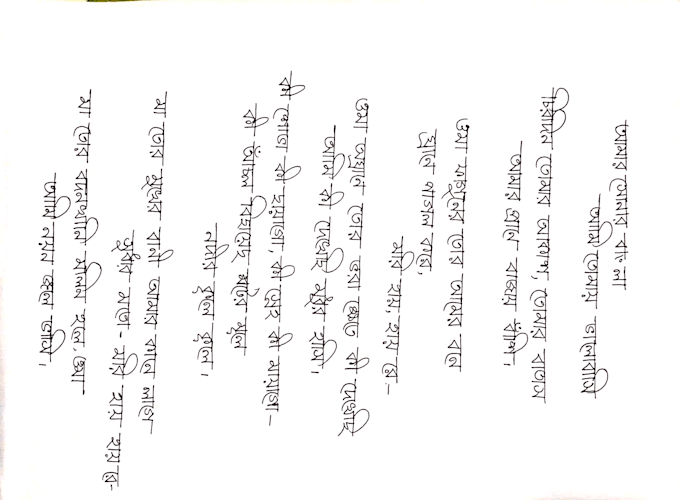 আমার সোনার বাংলা
আমি তোমায় ভালোবাসি
চিরদিন তোমার আকাশ, তোমার বাতাস
আমার প্রানে বাজায় বাঁশি।
ওমা ফাগুনের তোর আমের বনে
ঘ্রানে পাগল করে,
মরি হায়, হায় রে-
ওমা অঘ্রানে তোর ভরা ক্ষেতে কী দেখেছি
আমি কী দেখেছি মধুর হাসি।
কী শোভা কী ছায়াগো, কী স্নেহ কী মায়াগো-
কী আঁচল বিছায়েছ বটের মূলে
নদীর কূলে কূলে।
মা তোর মুখের বানী আমার কানে লাগে
সুধার মতো- মরি হায় হায় রে-
মা তোর বদনখানি মলিন হলে, ওমা
আমি নয়ন জলে ভাসি।